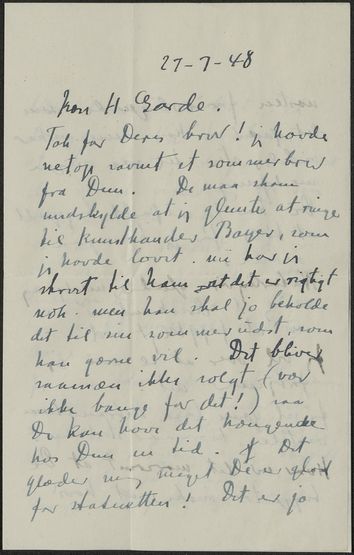 27-7-48
H. Garde.
Tak for Deres brev! jeg havde
netop savnet et sommerbrev
fra Dem. De maa skam
undskylde at jeg glemte at ringe
til Kunsthandler Bayer, som
jeg havde lovet. nu har jeg
skrevet til ham at det er rigtigt
nok. men han skal jo beholde
det til sin sommerudst, som
han gerne vil. Det bliver
saamæn ikke solgt (vær
ikke bange for det!) saa
De kan have det hængende
hos Dem en tid. Det
glæder mig meget De er glad
for statuetten! Det er jo